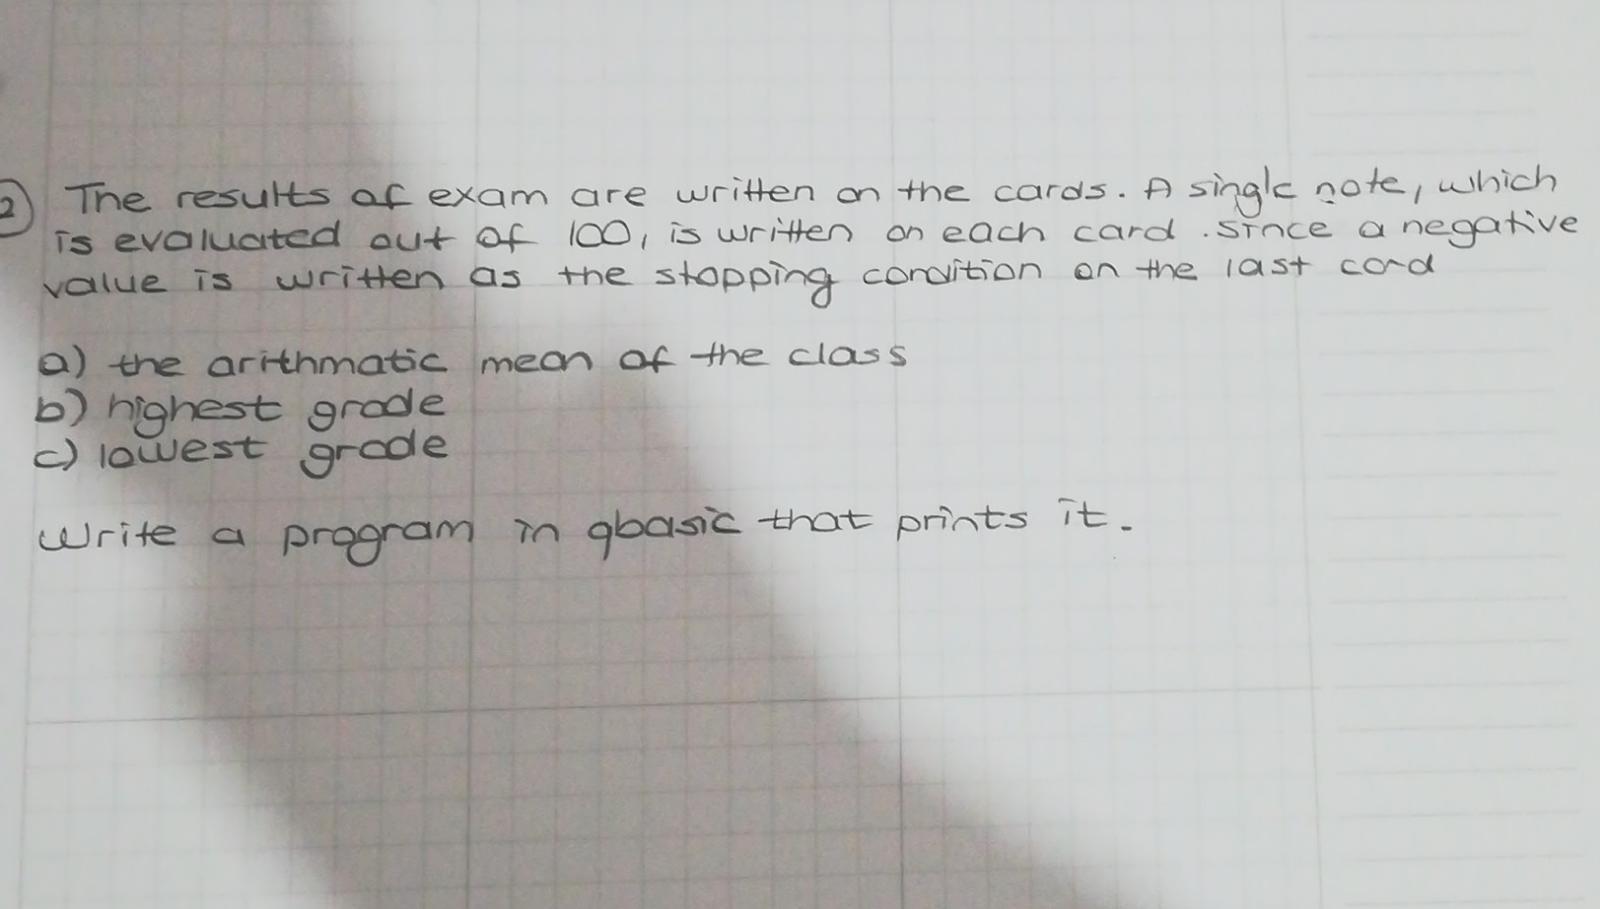 2) The results of exam are written on the cards. A single note, which
is evaluated out of 100, is written on each card. Since a negative
value is written as the stopping condition on the last card
a) the arithmatic mean of the class
b) highest grade
c) lowest grade
Write a program in qbasic that prints it.